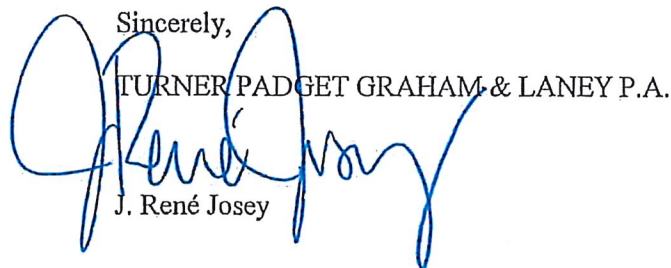 Sincerely,
TURNER PADGET GRAHAM & LANEY P.A.
J René Josey
J. René Josey